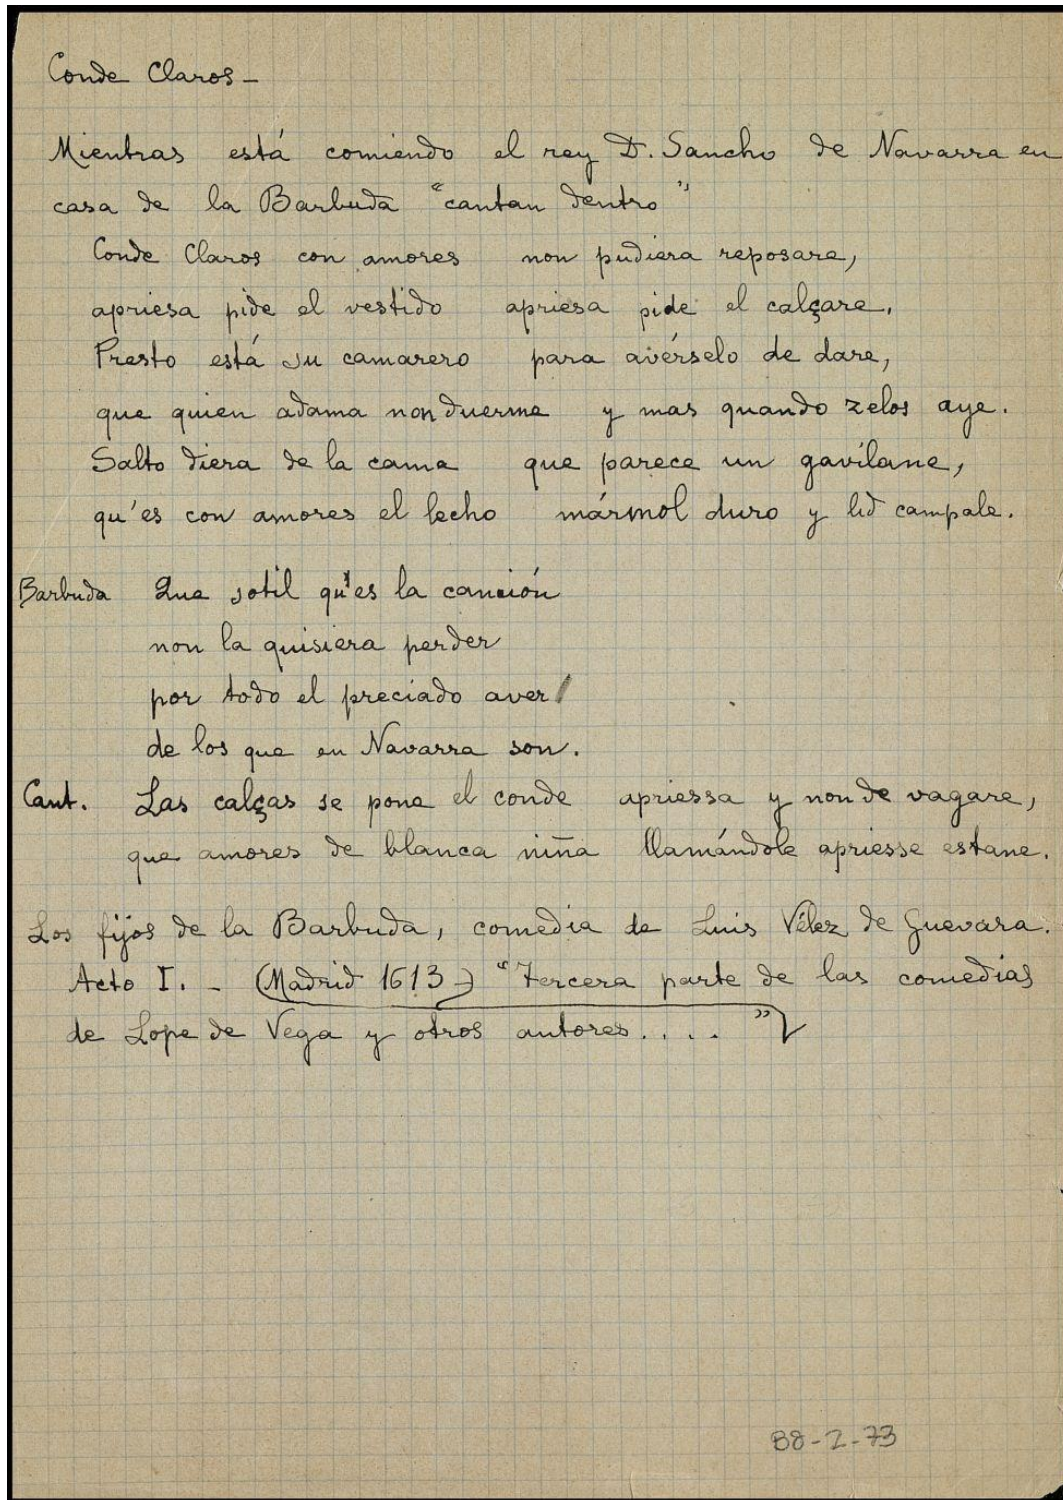 Conde Claros -
Mientras está comiendo el rey D. Sancho de Navarra en
casa de la Barbuda "cantan dentro"
Conde Claros con amores non pudiera reposare,
apriesa pide el vestido apriesa pide el calçare.
Presto está su camarero para avérselo de dare,
que quien adama non duerme y mas quando zelos aye.
Salto diera de la cama que parece un gavilane,
qu'es con amores el lecho mármol duro y lid campale.
Barbuda Que sotil qu'es la canción
non la quisiera perder
por todo el preciado aver
de los que en Navarra son.
Cant. Las calças se pone el conde apriessa y non de vagare,
que amores de blanca niña llamándole apriesse estane.
Los fijos de la Barbuda, comedia de Luis Vélez de Guevara.
Acto I. - (Madrid 1613) "Tercera parte de las comedias
de Lope de Vega y otros autores...."
B8-2-73